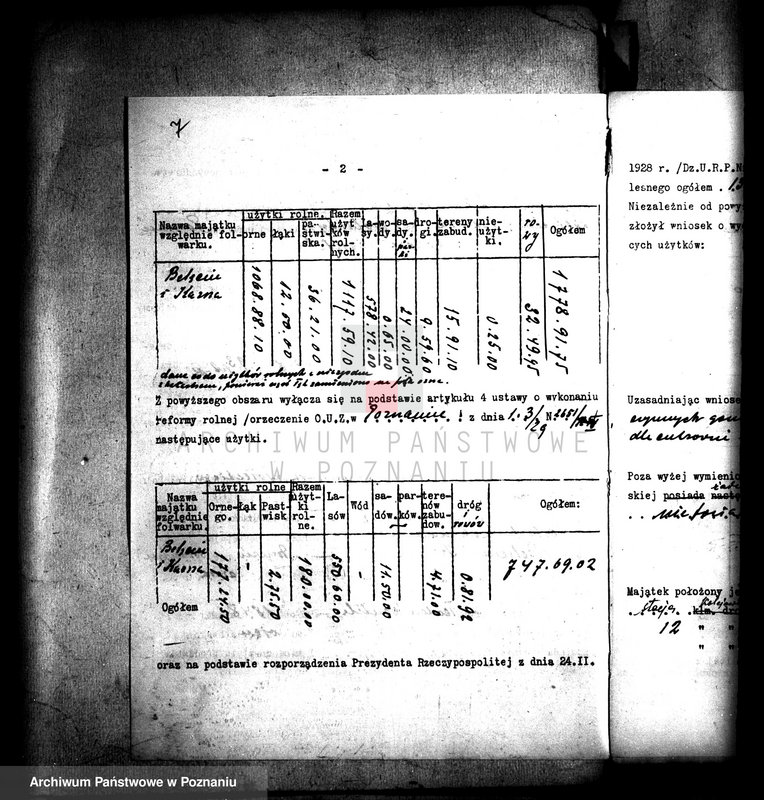 7
- 2 -
Nazwa majątku względnie folwarku. | użytki rolne. orne | łąki | pastwiska. | Razem użytków rolnych. | lasy. | wody. | sady. parki | drogi. | tereny zabud. | nieużytki. | rowy | Ogółem
i Karna | 1068.88.10 | 12.50.00 | 36.21.00 | 1117.59.10 | 578.42.00 | 0.85.00 | 24.00.00 | 9.59.60 | 15.91.10 | 0.25.00 | 32.49.95 | 1778.91.75
Z powyższego obszaru wyłącza się na podstawie artykułu 4 ustawy o wykonaniu
reformy rolnej /orzeczenie O.U.Z. w Poznaniu z dnia 1. 3/29 N.
następujące użytki.
Nazwa majątku względnie folwarku. | użytki rolne Ornego. | Łąk | Pastwisk | Razem użytki rolne. | Lasów | Wód | sadów. | parków. | terenów zabudow. | dróg i rowów | Ogółem:
i Karna | 177.24.50 | - | 2.75.50 | 180.00.00 | 550.60.00 | - | 11.50.00 | 4.31.00 | 0.8.92 | 747.69.02
Ogółem
oraz na podstawie rozporządzenia Prezydenta Rzeczypospolitej z dnia 24.II.
1928 r. /Dz.U.R.P.N
lesnego ogółem .
Niezależnie od powy
złożył wniosek o wy
cych użytków:
Uzasadniając wniose
dla cukrowni
Poza wyżej wymienio
skiej posiada nastę
Majątek położony je
stacja
12 " "
" "
ARCHIWUM PAŃSTWOWE
W POZNANIU
Archiwum Państwowe w Poznaniu